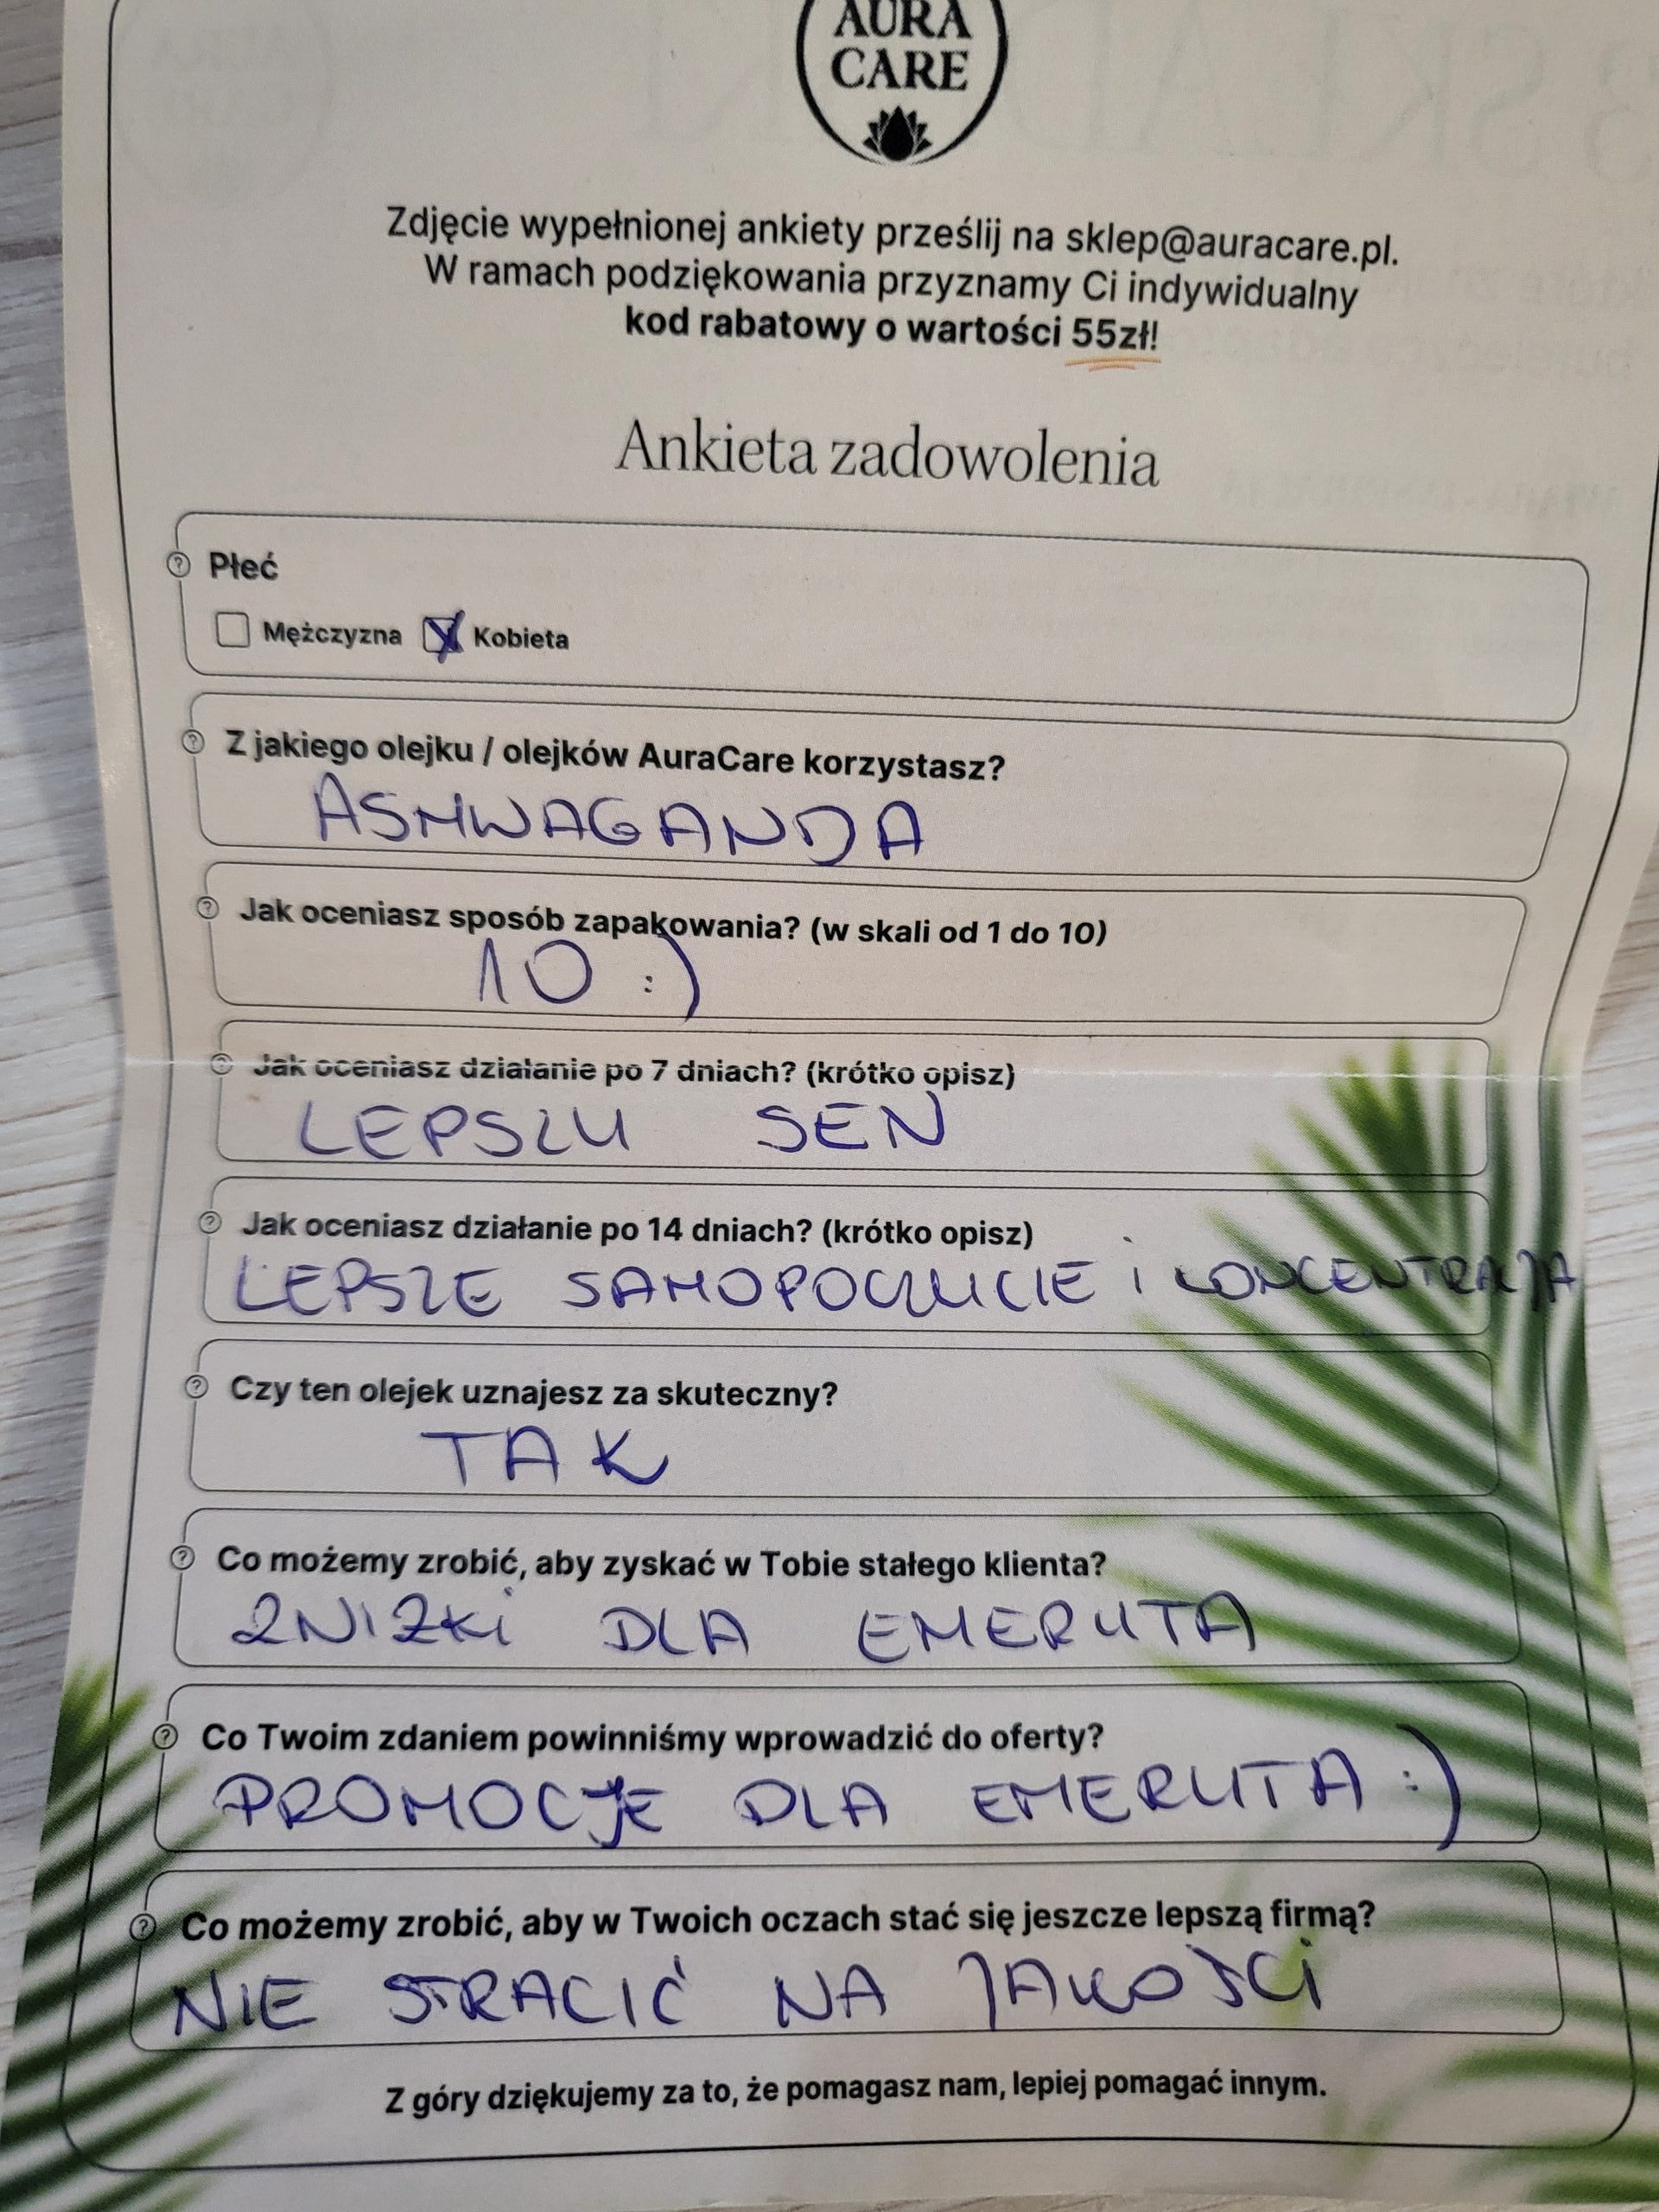 AURA
CARE
Zdjęcie wypełnionej ankiety prześlij na sklep@auracare.pl.
W ramach podziękowania przyznamy Ci indywidualny
kod rabatowy o wartości 55zł!
Ankieta zadowolenia
Płeć
Mężczyzna Kobieta
Z jakiego olejku / olejków AuraCare korzystasz?
ASHWAGANDA
Jak oceniasz sposób zapakowania? (w skali od 1 do 10)
10 :)
Jak oceniasz działanie po 7 dniach? (krótko opisz)
LEPSZY SEN
Jak oceniasz działanie po 14 dniach? (krótko opisz)
LEPSZE SAMOPOCZUCIE i KONCENTRACJA
Czy ten olejek uznajesz za skuteczny?
TAK
Co możemy zrobić, aby zyskać w Tobie stałego klienta?
ZNIZKi DLA EMERYTA
Co Twoim zdaniem powinniśmy wprowadzić do oferty?
PROMOCJE DLA EMERYTA :)
Co możemy zrobić, aby w Twoich oczach stać się jeszcze lepszą firmą?
NIE STRACIĆ NA JAKOŚCi
Z góry dziękujemy za to, że pomagasz nam, lepiej pomagać innym.